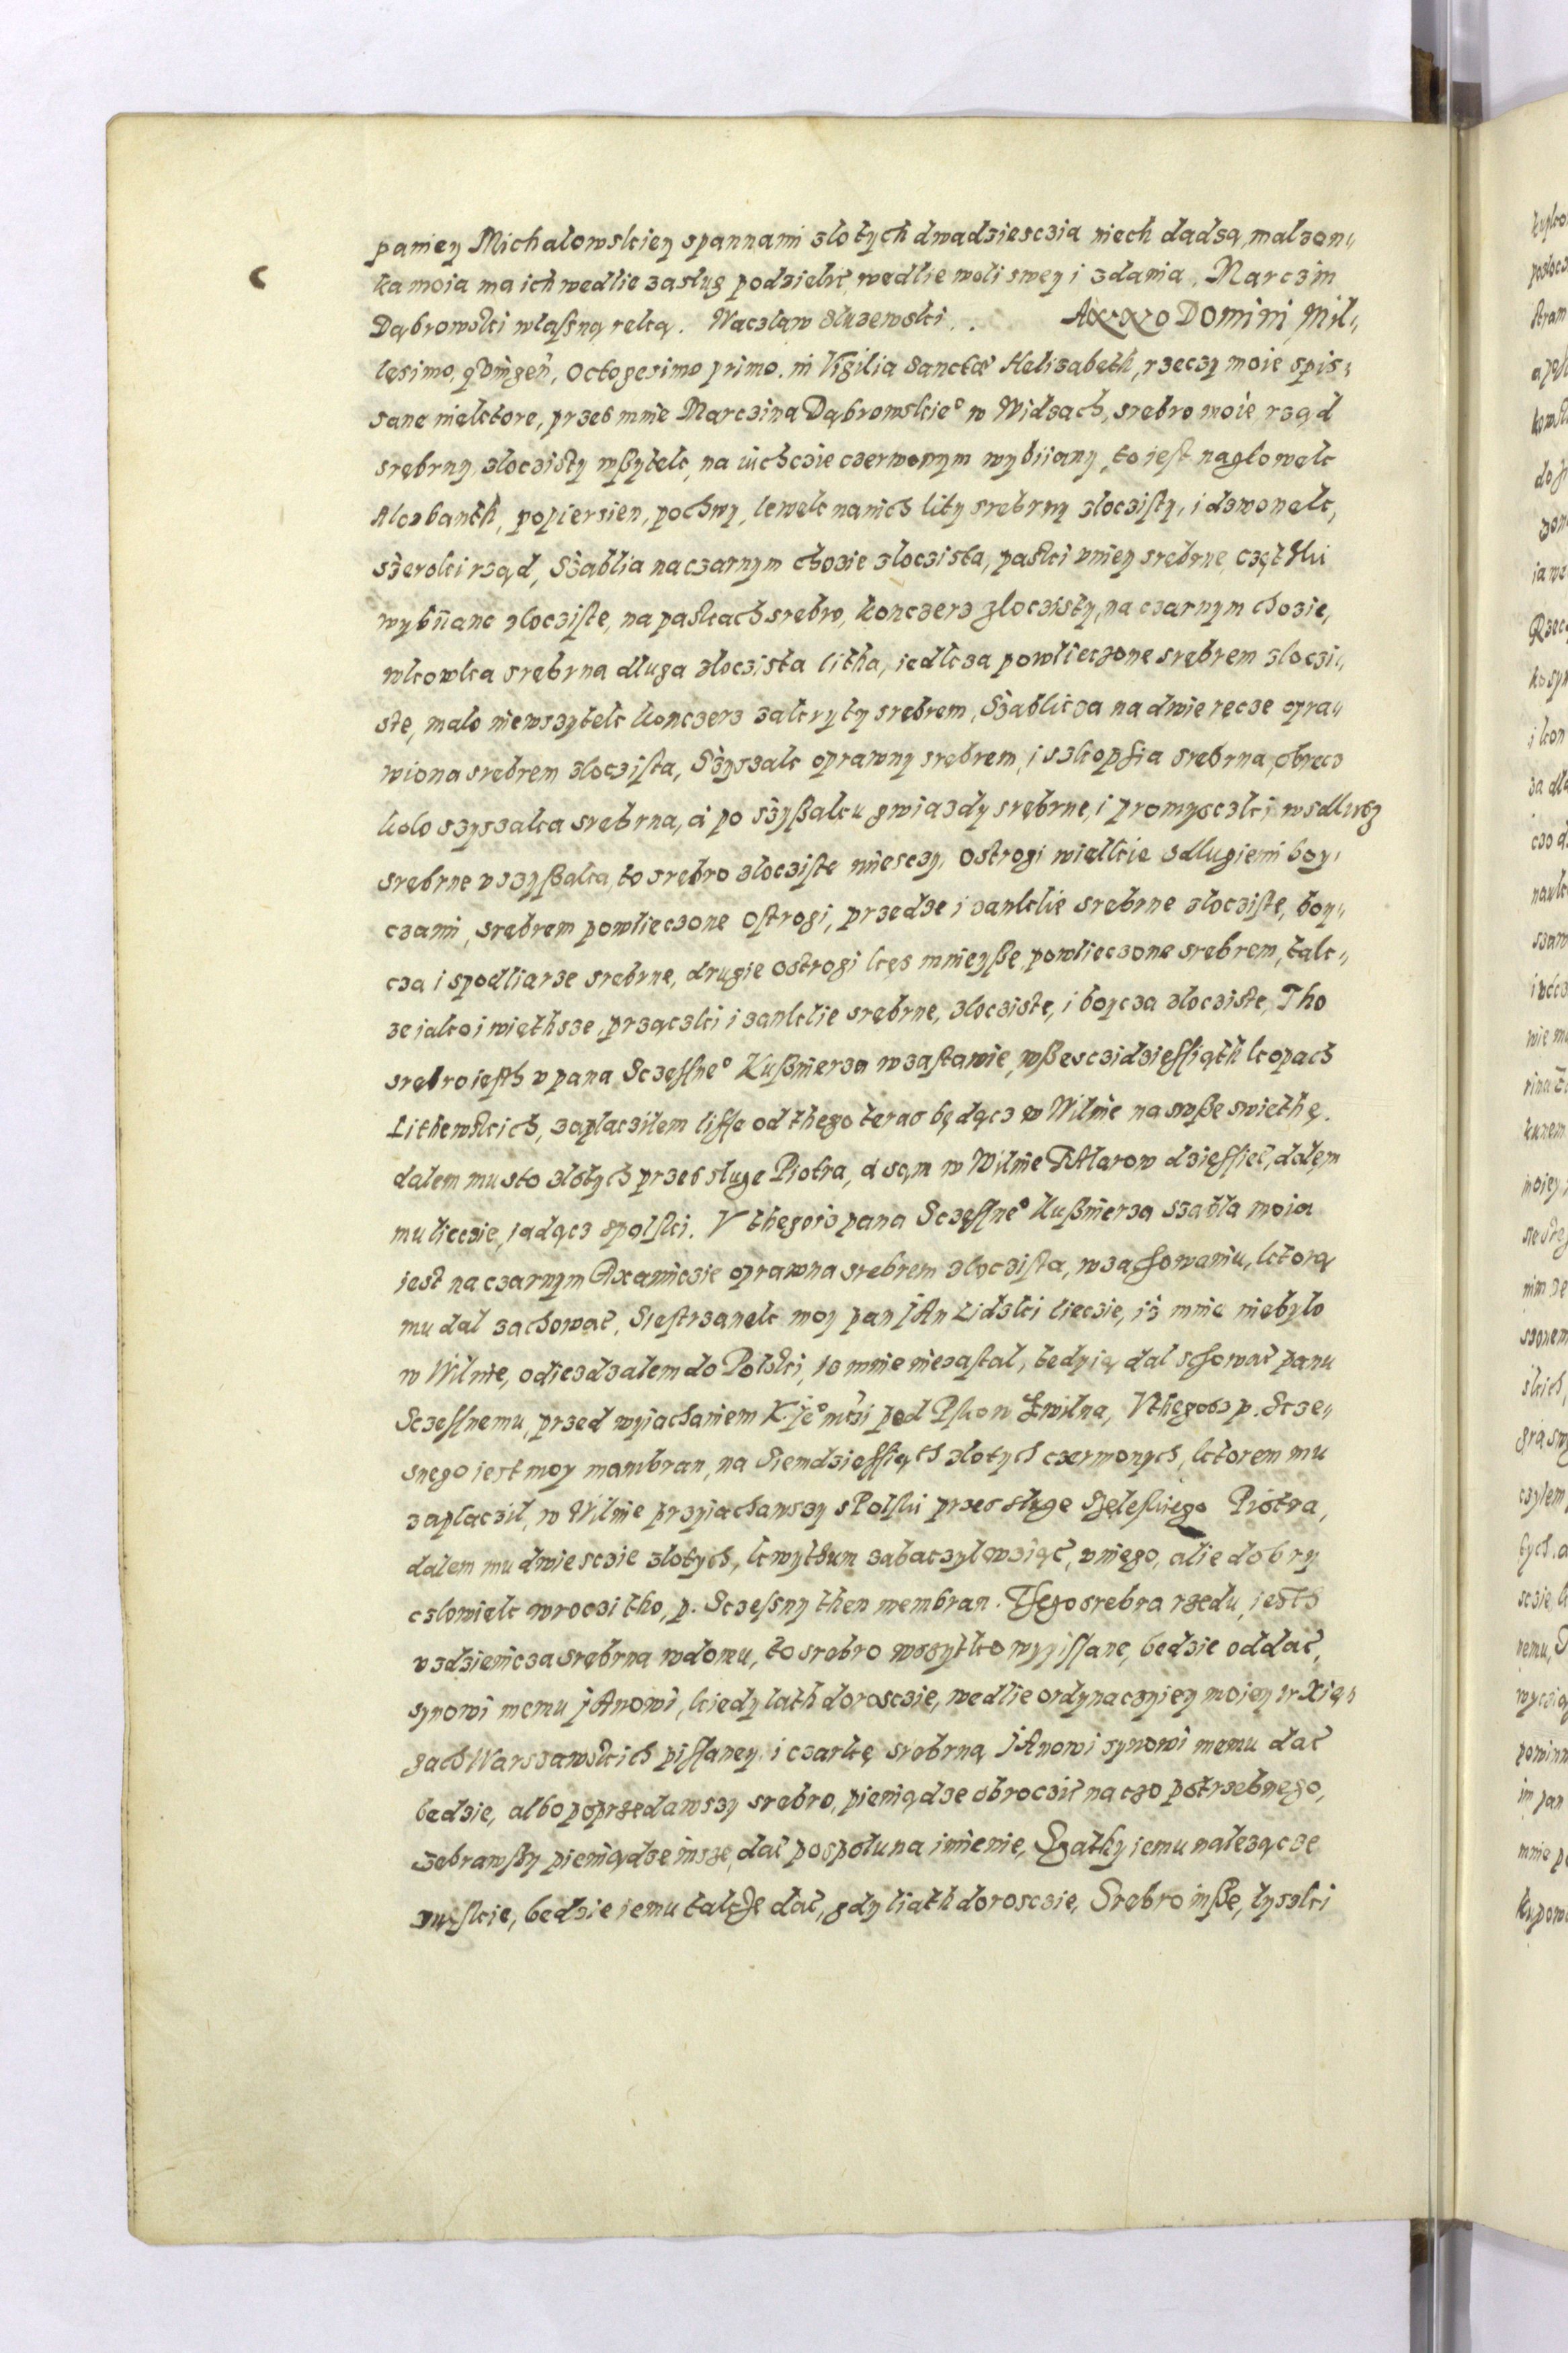 paniey Michalowskiey spannami zlotych dwadziesczia niech dadzą, malzon„
ka moia ma ich wedlie zasług podzielić, wedlie woli swey i zdania, Marczin
Dąbrowski własną ręką. Waczlaw Sluzewski.. Anno Domini Mil„
lęsimo, qVingeñ, Octogesimo primo. in Vigilia Sanctæ Helizabeth, rzeczy moie spis„
sane niektore, przes mnie Marczina Dąbrowskie° w Widzach, srebro moie rząd
srębrny, zloczisty wßytek, na iuchczie czerwonym wybiiany, to jest nagłowek
Alczbanth, popiersien, pochwy, lewek nanich lity srebrny zloczisty, i dzwonek,
szeroki rząd, Szablia na czarnym chozie zloczista, paski vniey srebrne, czętki
wybiiane zlocziste, na paskach srębro, konczerz zloczisty, na czarnym chozie,
wkowka srębrna dluga zloczista litha, iedlcza powlieczone srębrem zloczi„
ste, malo niewszytek konczerz zakryty srebrem, Szablicza na dwie ręcze opra„
wiona srebrem zloczista, Szyszak oprawny srębrem, i szkopfia srebrna, obręcz
kolo szyszaka srebrna, á po szyßaku gwiazdy srębrne, i promyoczki, wsdlusz
srębrne v szyßaka, to srębro zloczistę mieszy, Ostrogi wielkie zdlugiemi boy„
czami, srębrem powlieczone ostrogi, przedze i zanklie srebrne zloczistę, boy„
cza i spodliarze srebrne, drugie ostrogi kęs mnieyßę, powlieczone srebrem, tak„
ze iako i więthsze, przączki i zanklie srębrne, zloczistę, i boycza zloczistę, Tho
srębro iesth v pana Sczęsne° Kußnierza w zastawie, wßesczidziessiąth kopach
Lithewskich, zaplacziłem lissę od thego teraz będącz w Wilnie na swße swiethę.
dalem mu sto zlotych przes sluge Piotra, á sąm w Wilnie Talarow dziessieć, dałęm
mu lieczie, iadącz spolski. V thegoiz pana Sczęsne° Kußnierza szabla moia
jest na czarnym Axamiczie oprawna srebrem zloczista, w zachowaniu, ktorą
mu dal zachowac, Siestrzanek moy pan jAn Lidzki lieczie, iż mnie niebylo
w Wilnie, odiezdzalem do Polski, iz mnie niezastal, tedy ią dal schować panu
Sczesnemu, przed wyiachaniem K. Je° mczi pod Pskow Zwilna, Vthegosz p. Scze„
snego jest moy mambran, na Siemdziessiąth zlotych czerwonych, ktorem mu
zaplaczil, w Wilnie przyiachawszy s Polski przes slugę Piotra,
dalem mu dwiesczie zlotych, kwythum zabaczylem wziąć, v niego, alie dobry
czlowięk wroczi tho, p. Sczesny then membran. Thego srebra rzedu, iesth
vzdzienicza srębrna w domu, to srebro wszytko wypissane, będzie oddać,
synowi memu jAnowi, kiedy lath dorosczie, wedlie ordynaczyiey moiey w Xię„
gach Warszawskich pissaney, i czarkę srebrną jAnowi synowi memu dać
będzie, albo poprzedawszy srebro, pieniądze obroczić na czo potrzebnego,
zebrawßy pieniądze insze, dać pospolu na imienie, Szathy iemu należącze
męskie, będzie iemu takze dać, gdy liath dorosczie, Srębro inßę, lyszki